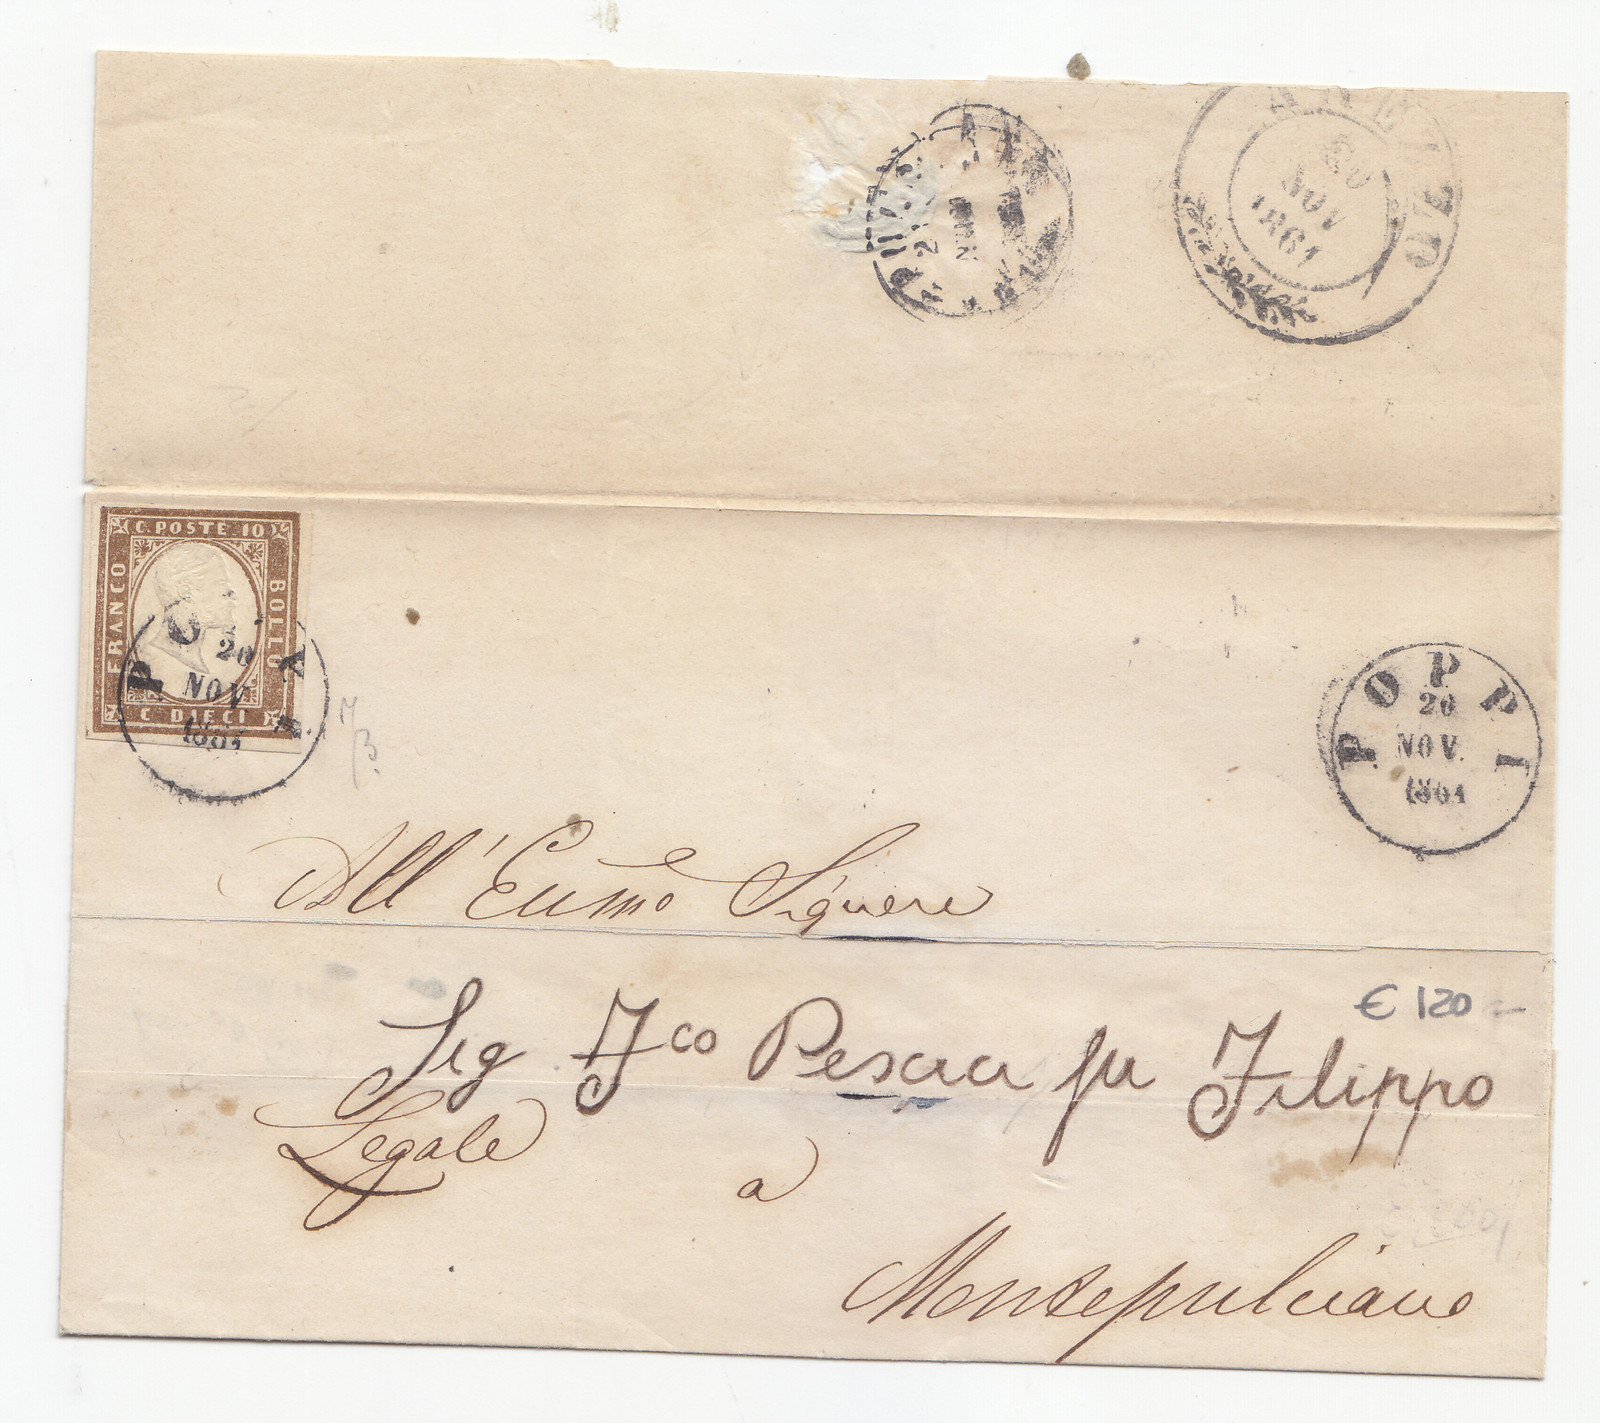 AREZZO
20
NOV
1861
C. POSTE 10
FRANCO
BOLLO
C. DIECI
POPPI
20
NOV
POPPI
20
NOV.
1861
All' Eccmo Signore
€ 120
Sig Fco Pesaci fu Filippo
Legale
a
Montepulciano